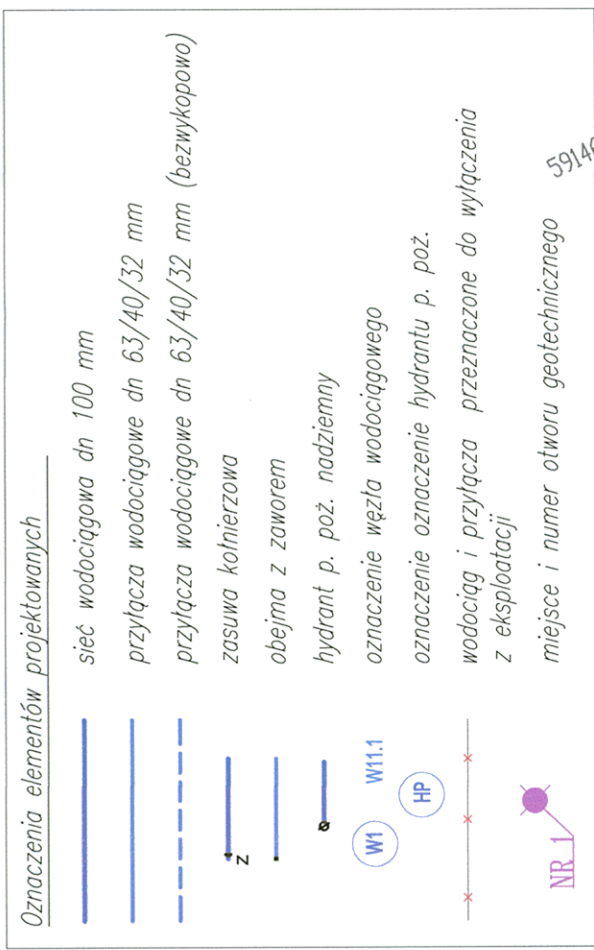 Oznaczenia elementów projektowanych
sieć wodociągowa dn 100 mm
przyłącza wodociągowe dn 63/40/32 mm
przyłącza wodociągowe dn 63/40/32 mm (bezwykopowo)
Z zasuwa kołnierzowa
obejma z zaworem
hydrant p. poż. nadziemny
W1 W11.1 oznaczenie węzła wodociągowego
HP oznaczenie oznaczenie hydrantu p. poż.
wodociąg i przyłącza przeznaczone do wyłączenia
z eksploatacji
NR 1 miejsce i numer otworu geotechnicznego